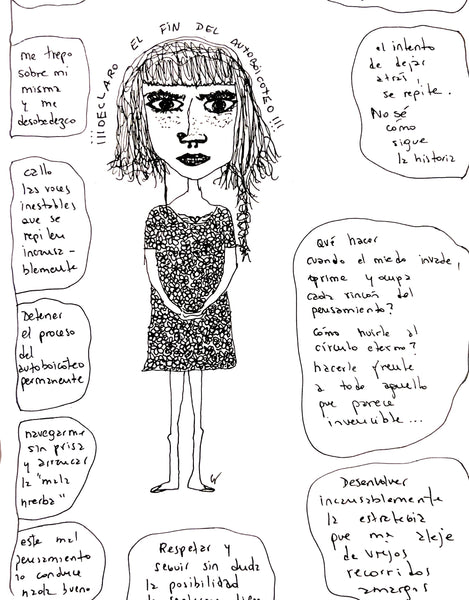 ¡¡¡DECLARO EL FIN DEL AUTOBOICOTEO!!!
me trepo
sobre mi
misma
y me
desobedezco
callo
las voces
inestables
que se
repiten
incansa-
blemente
Detener
el proceso
del
autoboicoteo
permanente
navegarme
sin prisa
y arrancar
la "mala
hierba"
este mal
pensamiento
no conduce
nada bueno
Respetar y
seguir sin duda
la posibilidad
el intento
de dejar
atrás,
se repite.
No sé
como
sigue
la historia
Qué hacer
cuando el miedo invade,
oprime y ocupa
cada rincón del
pensamiento?
Cómo huirle al
círculo eterno?
hacerle frente
a todo aquello
que parece
invencible...
Desenvolver
incansablemente
la estrategia
que me aleje
de viejos
recorridos
amargos